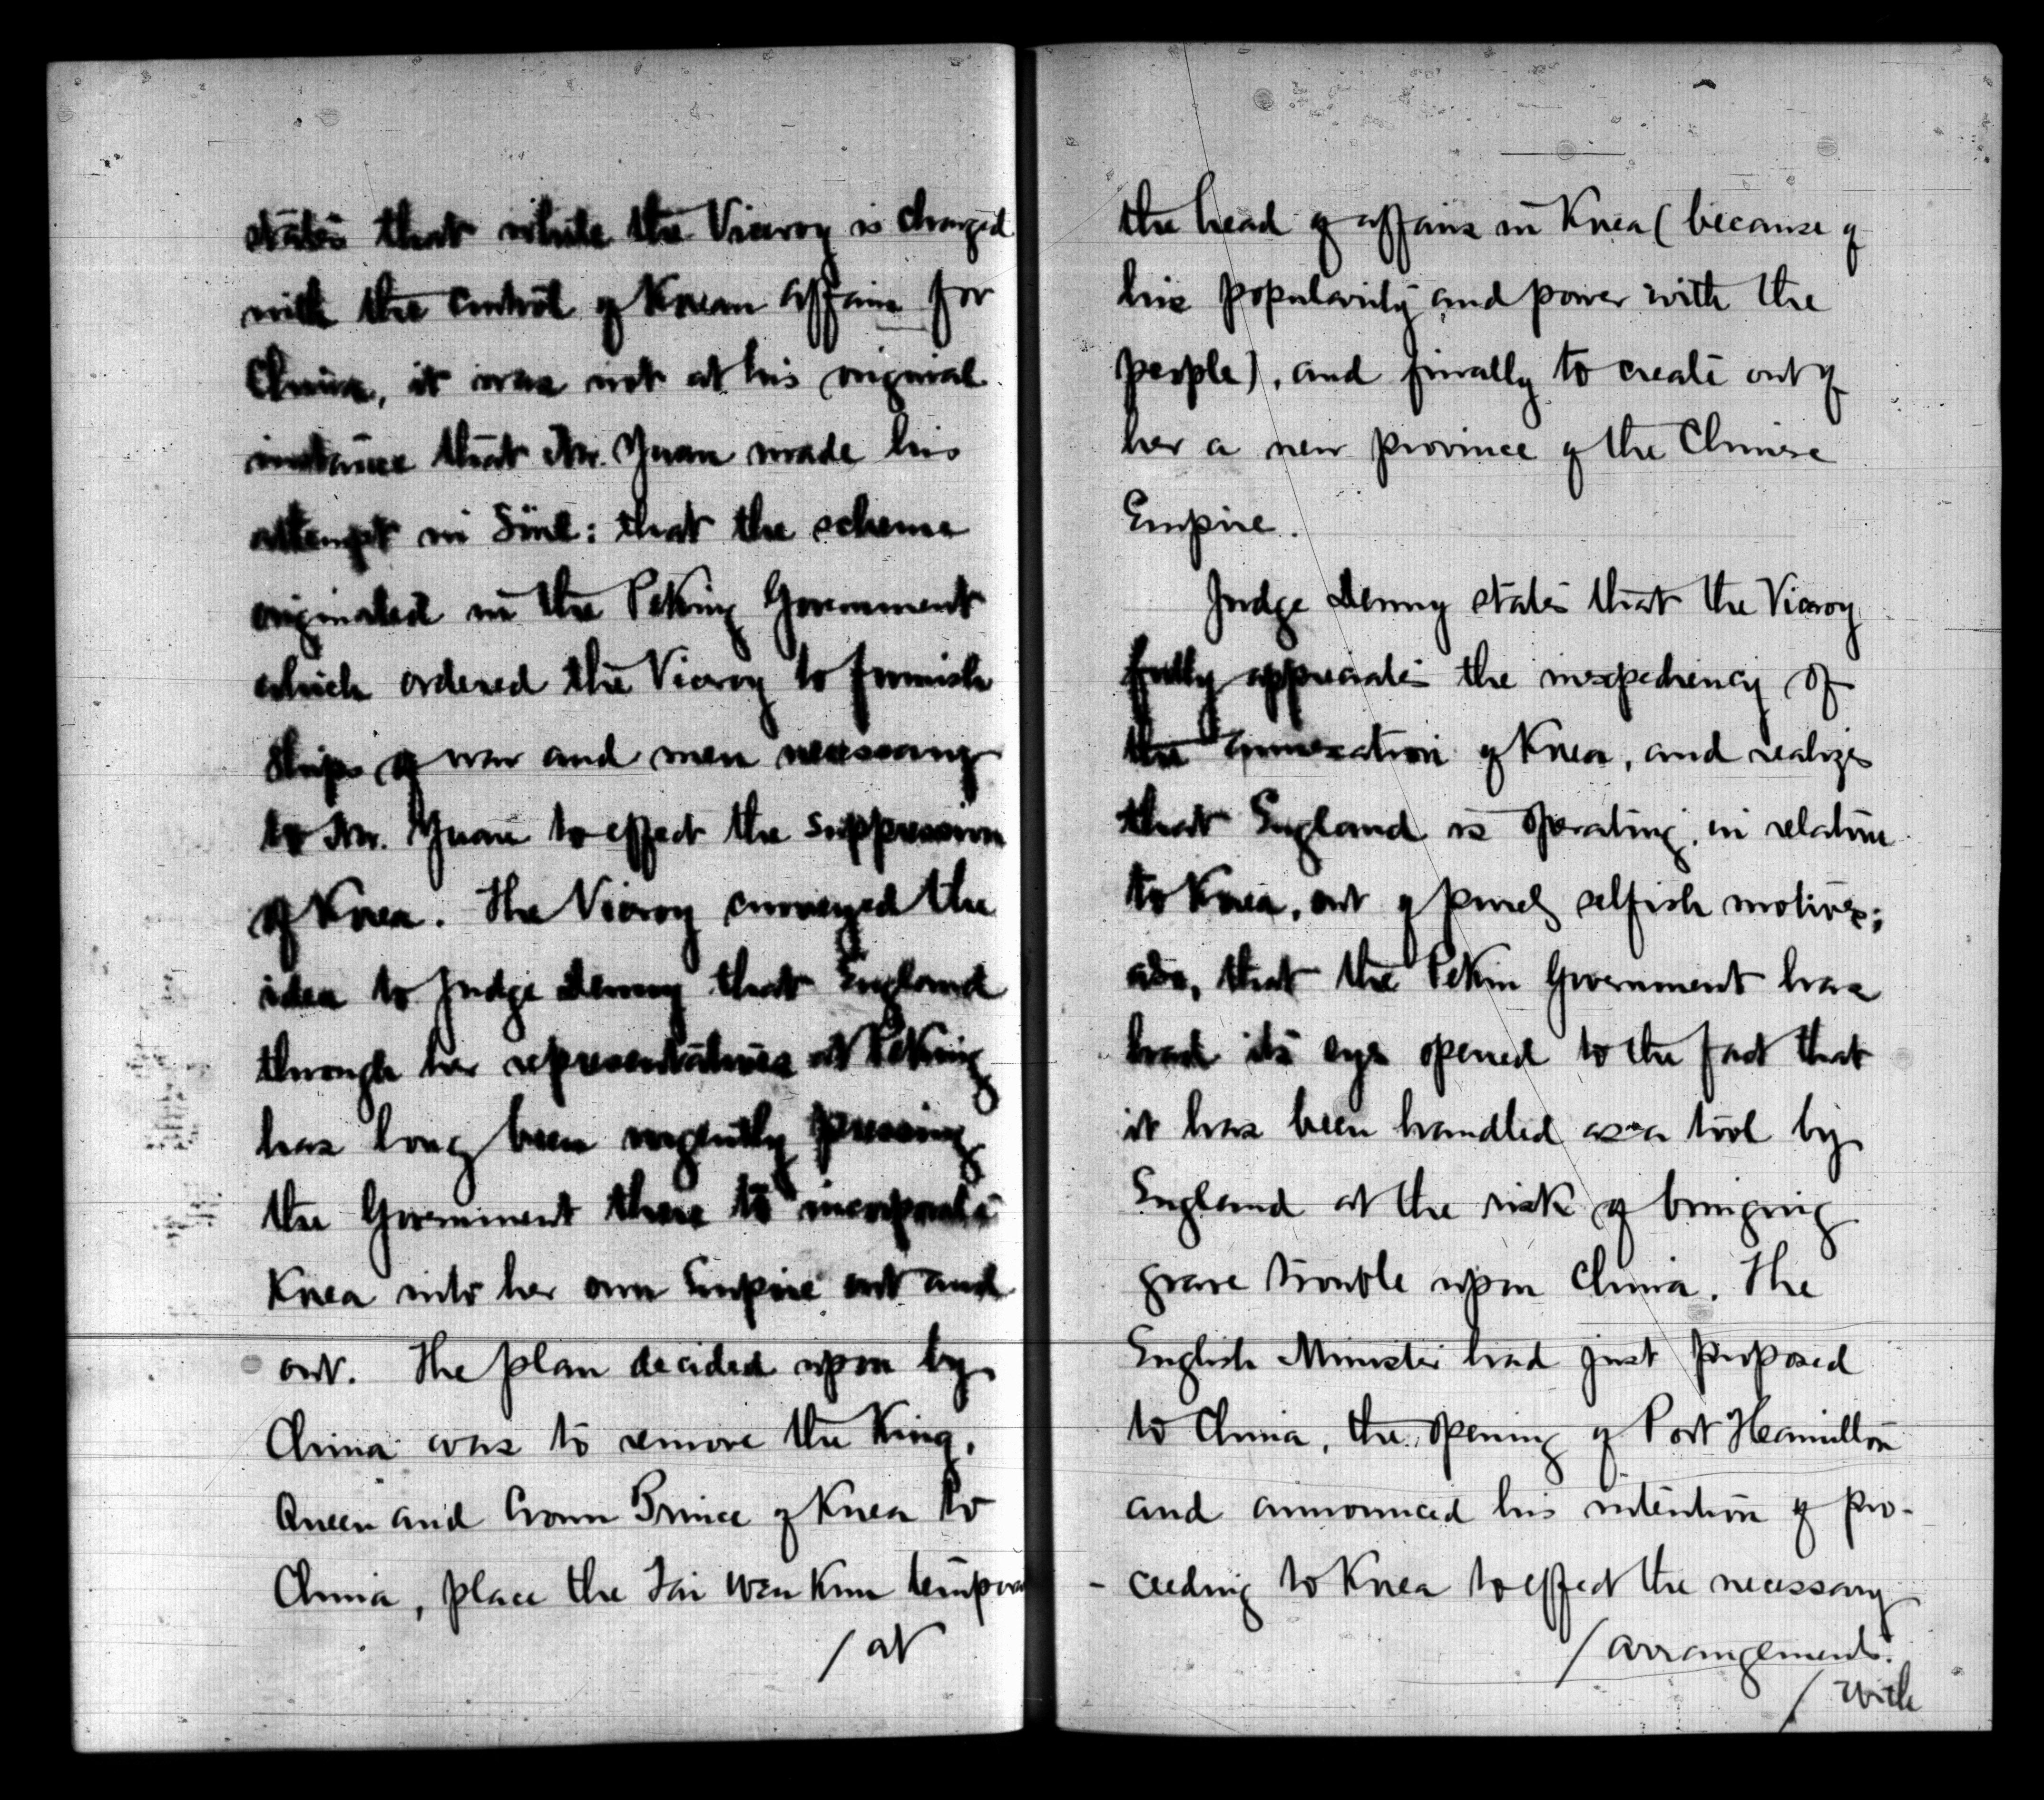 states that while the Viceroy is charged
with the control of Korean affairs for
China, it was not at his original
instance that Mr. Yuan made his
attempt in Söul: that the scheme
originated in the Peking Government
which ordered the Viceroy to furnish
ships of war and men necessary
to Mr. Yuan to effect the suppression
of Korea. The Viceroy conveyed the
idea to Judge Denny that England
through her representatives at Peking
has long been urgently pressing
the Government there to incorporate
Korea into her own Empire out and
out. The plan decided upon by
China was to remove the King,
Queen and Crown Prince of Korea to
China, place the Tai Wen Kun tempora
/ at
the head of affairs in Korea (because of
his popularity and power with the
people), and finally to create out of
her a new province of the Chinese
Empire.
Judge Denny states that the Viceroy
fully appreciates the inexpediency of
the annexation of Korea, and realizes
that England is operating, in relation
to Korea, out of purely selfish motives;
also, that the Pekin Government has
had its eyes opened to the fact that
it has been handled as a tool by
England at the risk of bringing
grave trouble upon China. The
English Minister had just proposed
to China, the opening of Port Hamilton
and announced his intention of pro-
- ceeding to Korea to effect the necessary
/ arrangements.
/ With